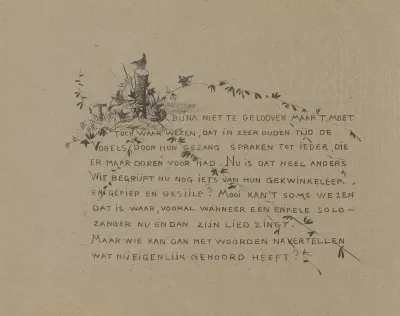 'T IS BIJNA NIET TE GELOOVEN MAAR 'T MOET
TOCH WAAR WEZEN, DAT IN ZEER OUDEN TIJD DE
VOGELS DOOR HUN GEZANG SPRAKEN TOT IEDER, DIE
ER MAAR OOREN VOOR HAD. NU IS DAT HEEL ANDERS
WIE BEGRIJPT NU NOG IETS VAN HUN GEKWINKELEER
EN GEPIEP EN GESJILP? MOOI KAN'T SOMS WEZEN
DAT IS WAAR, VOORAL WANNEER EEN ENKELE SOLO-
ZANGER NU EN DAN ZIJN LIED ZINGT.
MAAR WIE KAN DAN MET WOORDEN NAVERTELLEN
WAT HIJ EIGENLIJK GEHOORD HEEFT?